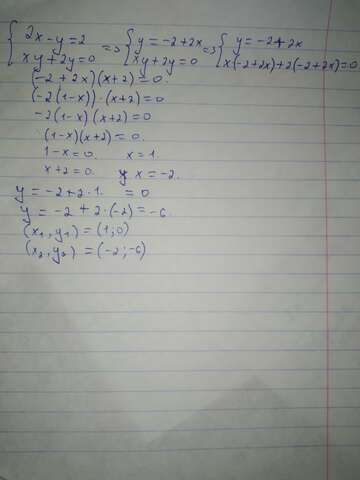 { 2x - y = 2 => { y = -2 + 2x => { y = -2 + 2x
{ xy + 2y = 0 { xy + 2y = 0 { x(-2 + 2x) + 2(-2 + 2x) = 0
(-2 + 2x)(x + 2) = 0
(-2(1-x)) · (x + 2) = 0
-2(1-x)(x + 2) = 0
(1-x)(x + 2) = 0.
1 - x = 0. x = 1.
x + 2 = 0. x = -2.
y = -2 + 2 · 1. = 0
y = -2 + 2 · (-2) = -6.
(x1, y1) = (1; 0)
(x2, y2) = (-2; -6)